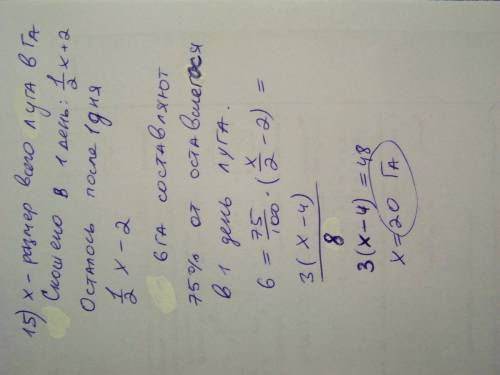 15) x - размер всего луга в га
Скошено в 1 день: 1/2 x + 2
Осталось после 1 дня
1/2 x - 2
6 га составляют
75% от оставшегося
в 1 день луга.
6 = 75/100 · (x/2 - 2) =
3(x-4)/8
3(x-4) = 48
x = 20 га